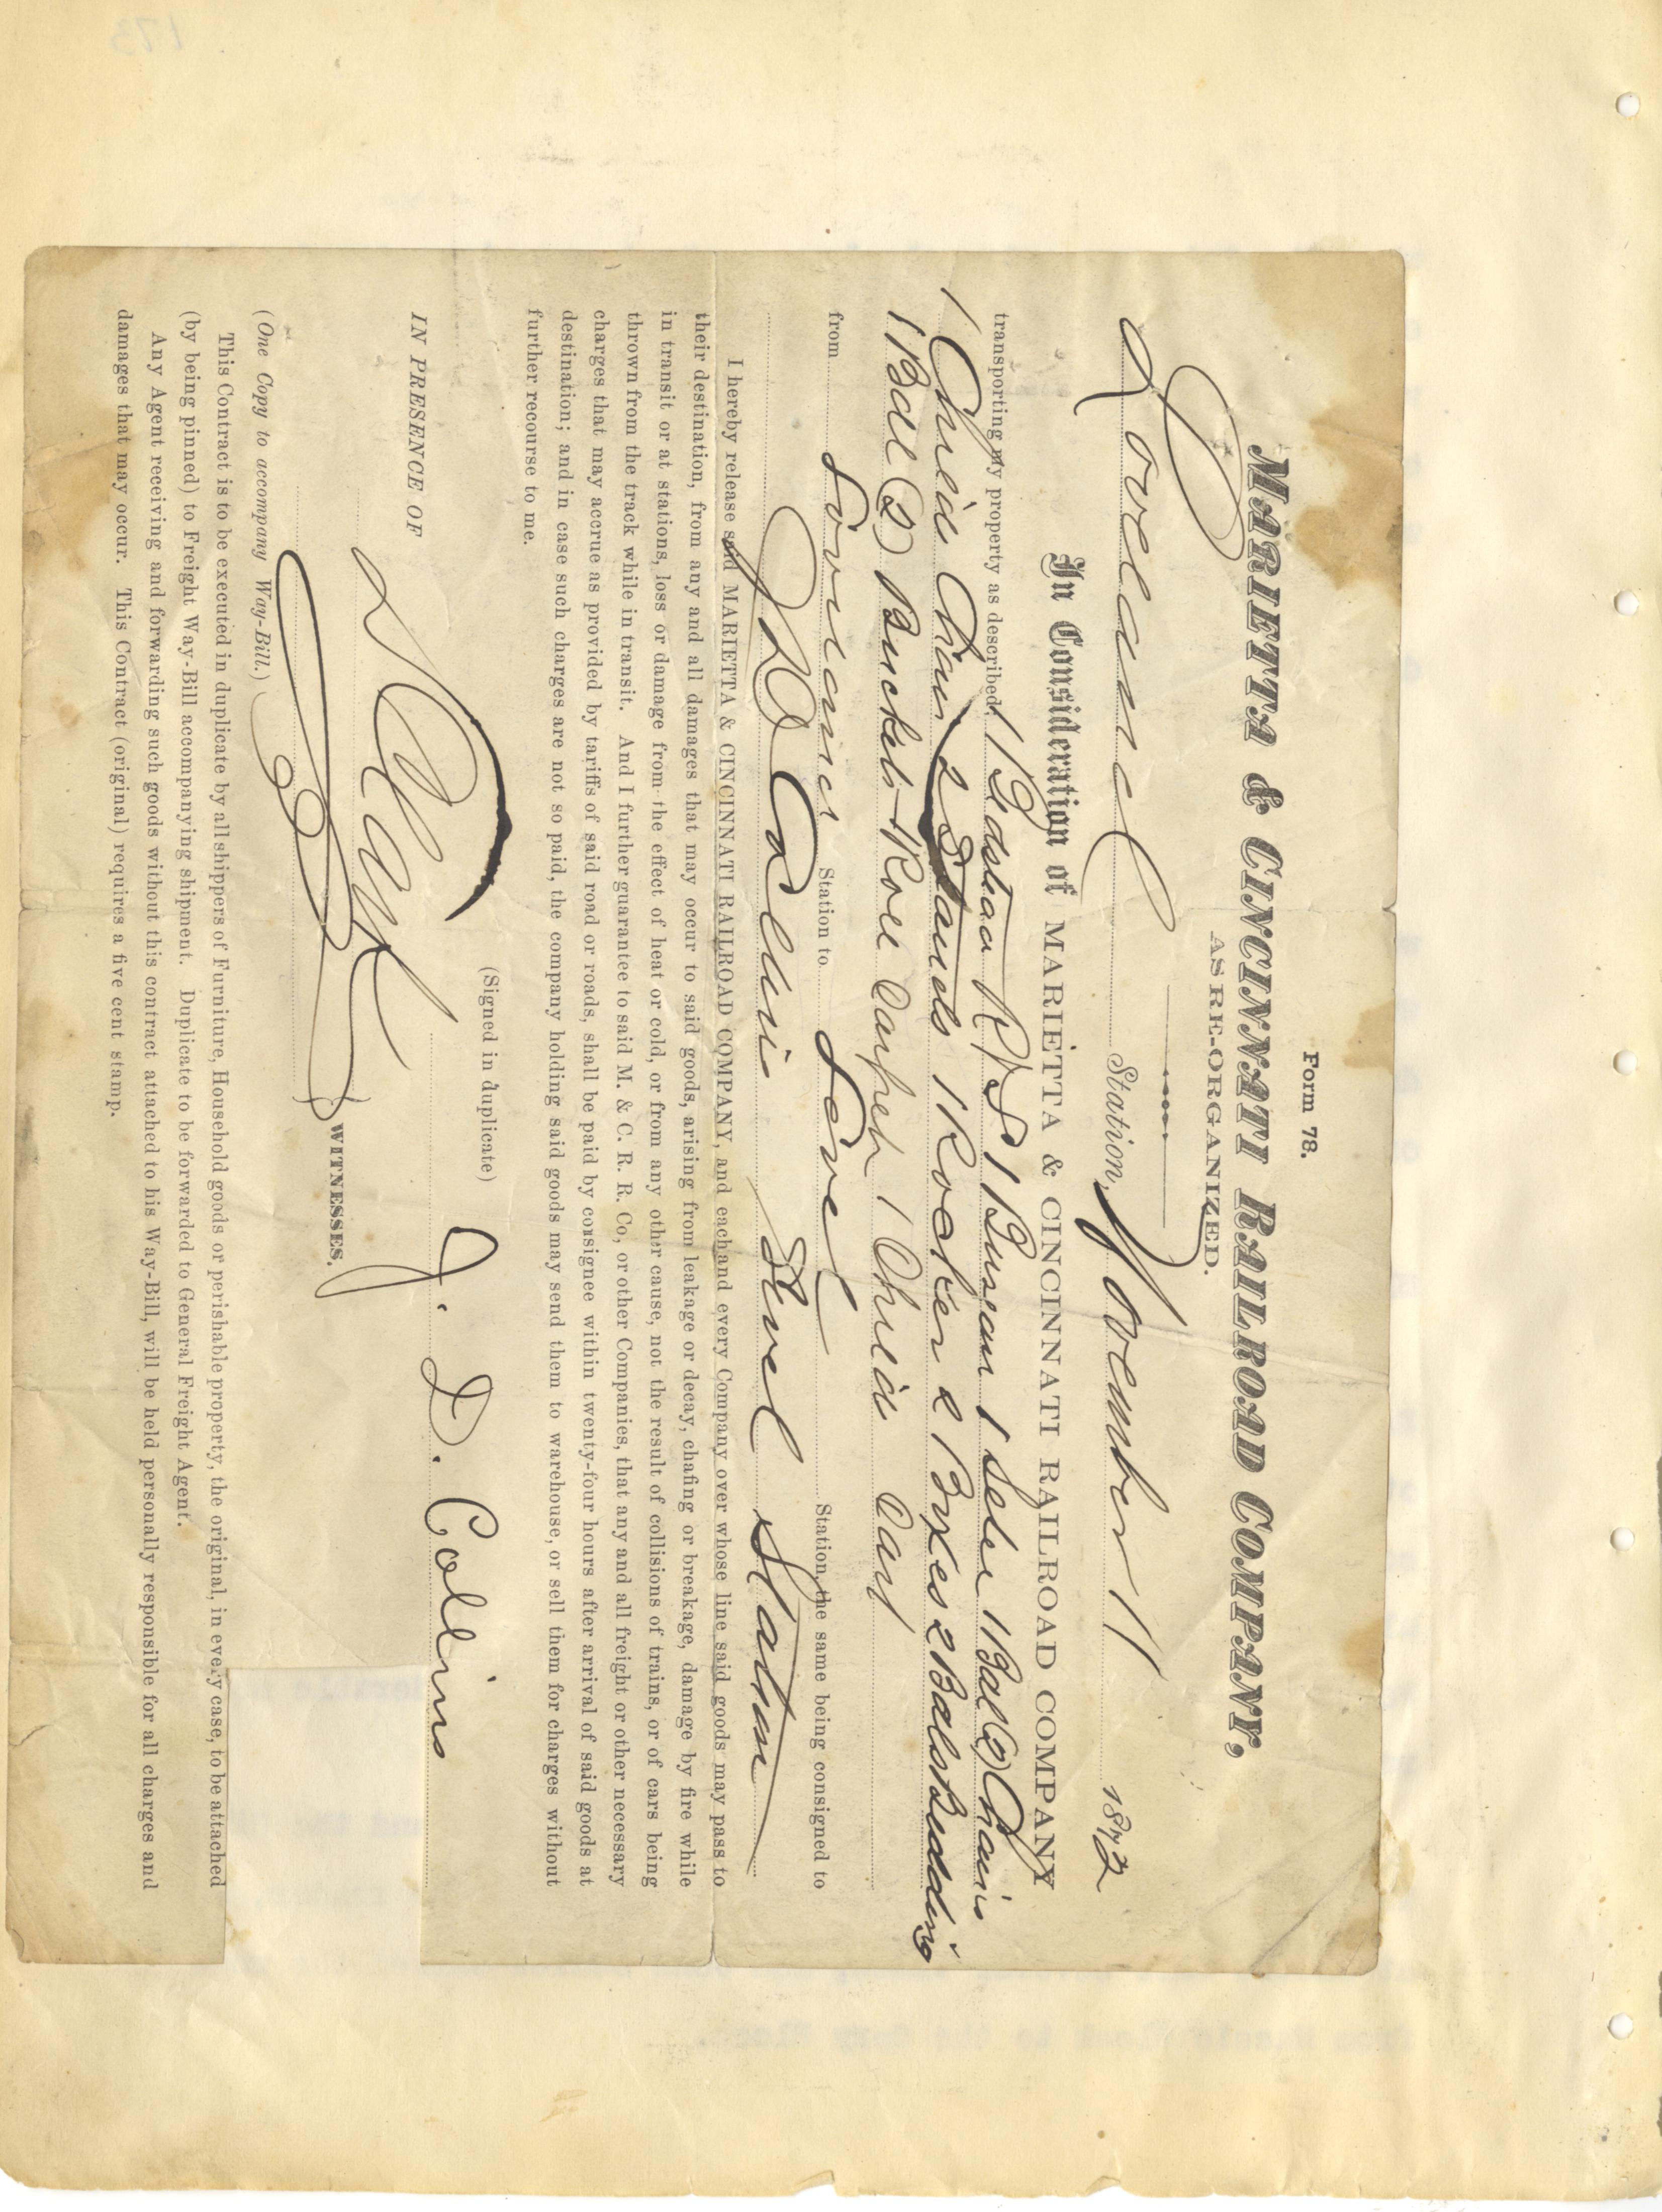 Form 78.
MARIETTA & CINCINNATI RAILROAD COMPANY,
AS RE-ORGANIZED.
Loveland Station, November 11 1872
In Consideration of MARIETTA & CINCINNATI RAILROAD COMPANY
transporting my property as described, 1 Bdstead 1 Bureau 1 1 Bdl (2) Chairs
1 Childs Chair 2 Stands 1 Rocker 2 Boxes 2 Bdls Bedding
1 Bdl (2) Buckets 1 Roll Carpet 1 Childs
from Loveland Station to Level Station, the same being consigned to
J D Collins Level Station
I hereby release said MARIETTA & CINCINNATI RAILROAD COMPANY, and each and every Company over whose line said goods may pass to
their destination, from any and all damages that may occur to said goods, arising from leakage or decay, chafing or breakage, damage by fire while
in transit or at stations, loss or damage from the effect of heat or cold, or from any other cause, not the result of collisions of trains, or of cars being
thrown from the track while in transit. And I further guarantee to said M. & C. R. R. Co., or other Companies, that any and all freight or other necessary
charges that may accrue as provided by tariffs of said road or roads, shall be paid by consignee within twenty-four hours after arrival of said goods at
destination; and in case such charges are not so paid, the company holding said goods may send them to warehouse, or sell them for charges without
further recourse to me.
(Signed in duplicate) J. D. Collins
IN PRESENCE OF
WITNESSES.
(One Copy to accompany Way-Bill.)
This Contract is to be executed in duplicate by all shippers of Furniture, Household goods or perishable property, the original, in every case, to be attached
(by being pinned) to Freight Way-Bill accompanying shipment. Duplicate to be forwarded to General Freight Agent.
Any Agent receiving and forwarding such goods without this contract attached to his Way-Bill, will be held personally responsible for all charges and
damages that may occur. This Contract (original) requires a five cent stamp.
173